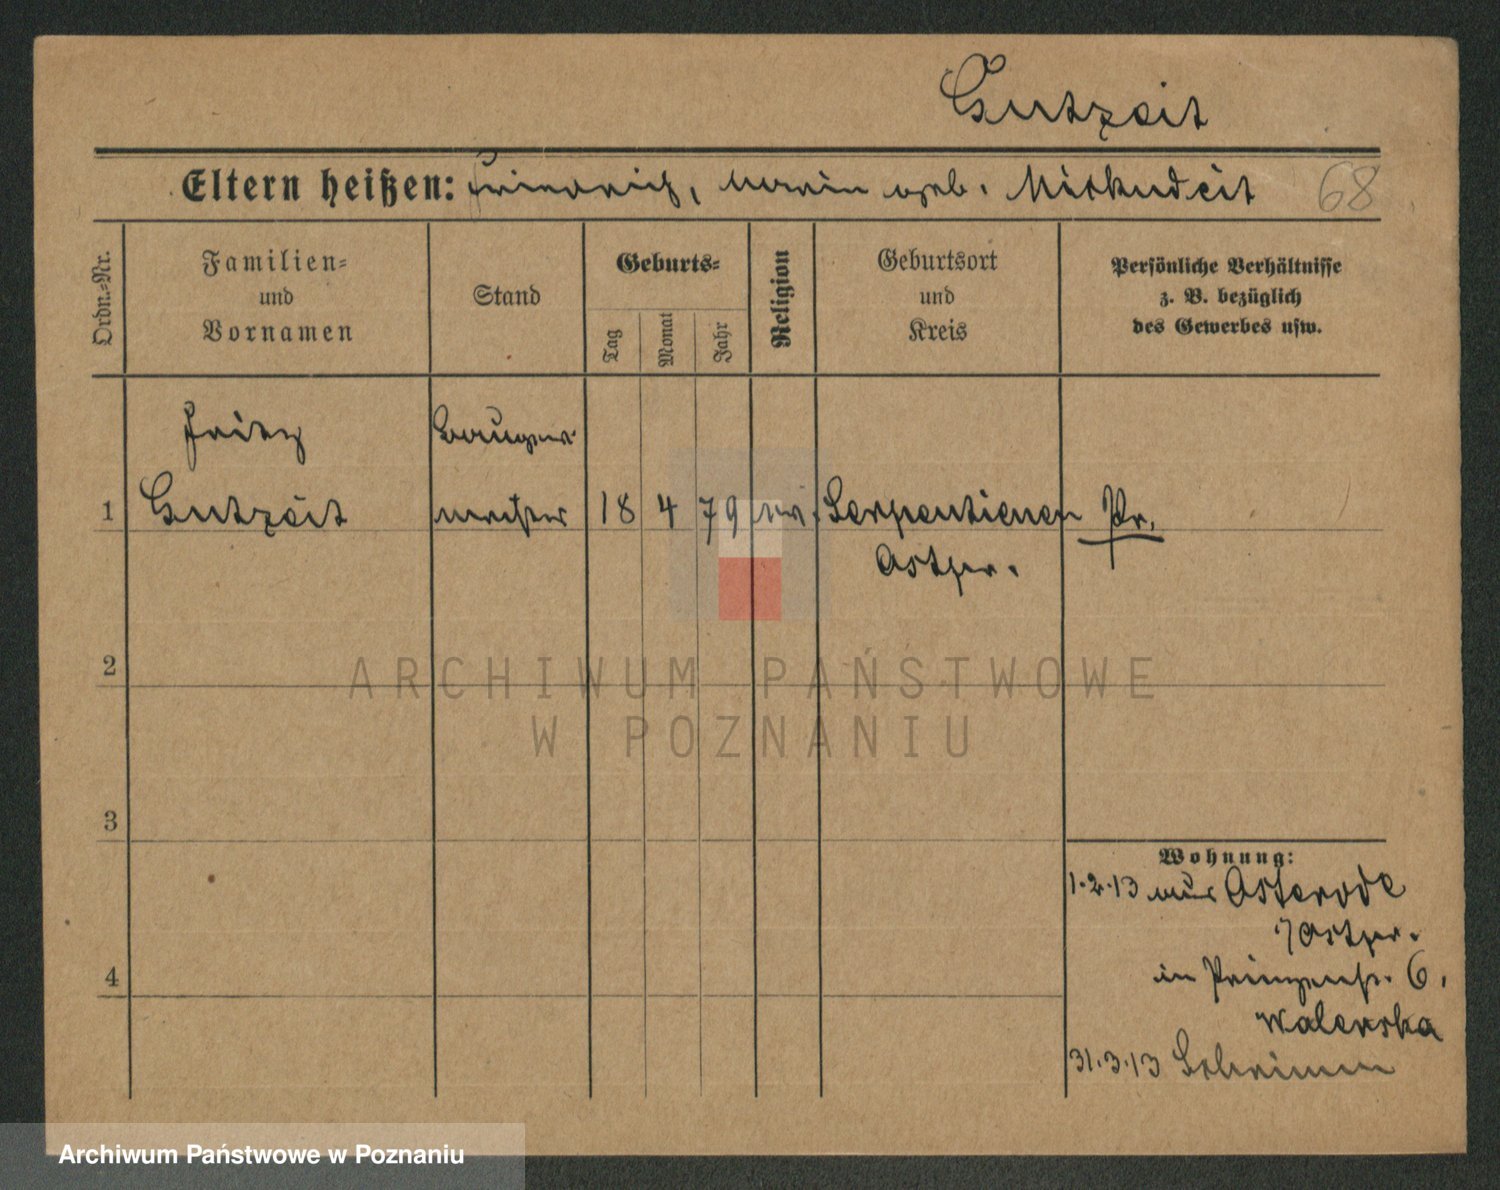 Gutzeit
Eltern heißen: Friedrich, Marin geb. Mitkudeit 68
Ordn.-Nr.
Familien-
und
Vornamen
Stand
Geburts-
Tag
Monat
Jahr
Religion
Geburtsort
und
Kreis
Persönliche Verhältnisse
z. B. bezüglich
des Gewerbes usw.
Fritz Baugew.
1 Gutzeit meister 18 4 79 ev. Serpentienen Pr.
Ostpr.
2
ARCHIWUM PAŃSTWOWE
W POZNANIU
3
Wohnung:
1.2.13 aus Osterode
i/Ostpr.
4
in Prinzenstr. 6,
Walerska
31.3.13 Schrimm
Archiwum Państwowe w Poznaniu